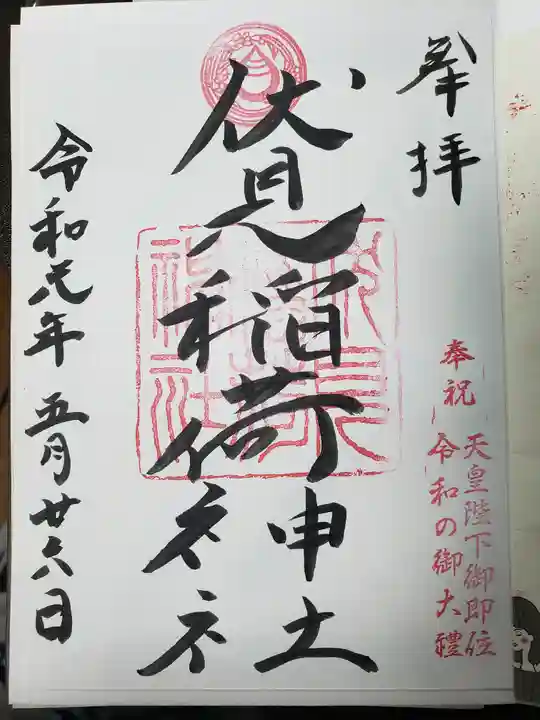 奉拝
奉祝
天皇陛下御即位
令和の御大禮
伏見稲荷神社
令和元年五月廿六日